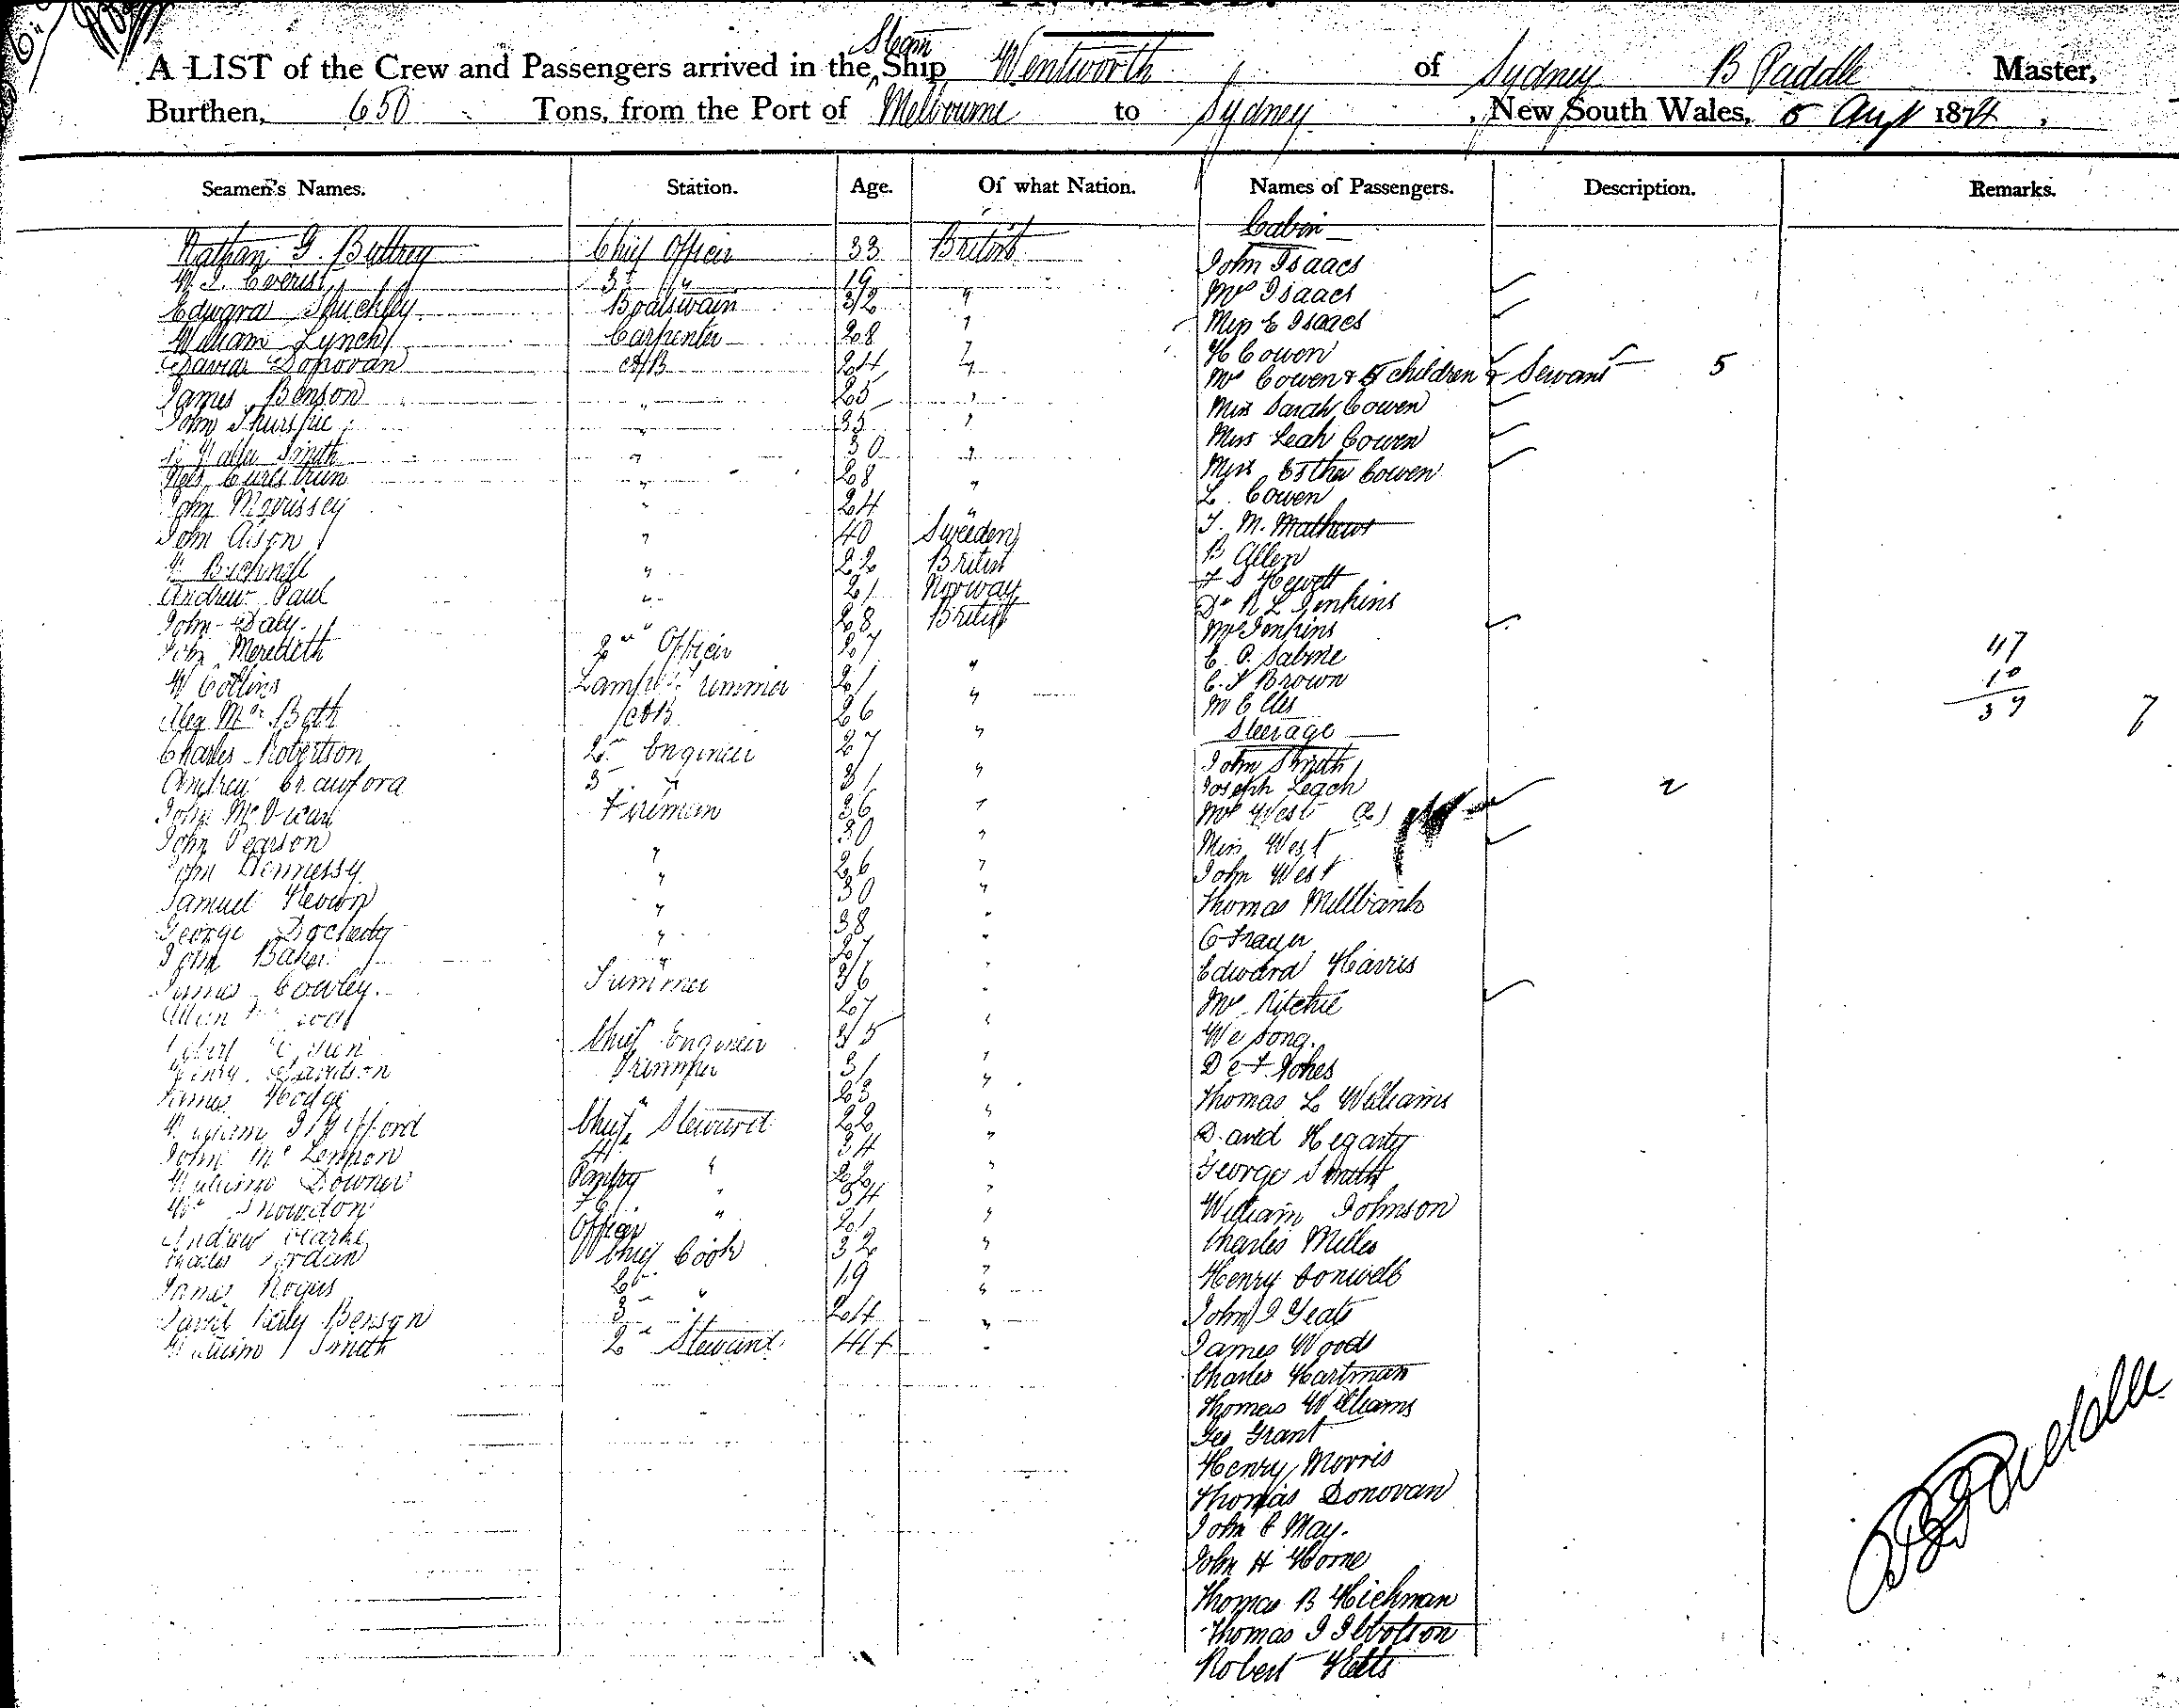 A LIST of the Crew and Passengers arrived in the Steam Ship Wentworth of Sydney B Paddle Master,
Burthen, 650 Tons, from the Port of Melbourne to Sydney, New South Wales, 5 Augt 1874,
Seamen's Names. Station. Age. Of what Nation. Names of Passengers. Description. Remarks.
Cabin
Nathan G. Buttrey Chief Officer 33 British John Isaacs
W. I. Everist 3rd " 19 Mrs Isaacs
Edward Stuckley Boatswain 32 " Miss E Isaacs
William Lynch Carpenter 28 " H Cowen
David Donovan AB 24 " Mrs Cowen & 5 children & Servant 5
James Benson " 25 " Miss Sarah Cowen
John " 35 " Miss Leah Cowen
Smith " 30 " Miss Esther Cowen
" 28 " L. Cowen
John Morrissey " 24 " T. M. Mathews
John Aison " 40 Sweden B Allen
W. Bicknell " 22 British F S Hewett
Andrew Paul " 21 Norway Dr R L Jenkins
John Daly " 28 British Mrs Jenkins
John Meredith 2nd Officer 27 " C. P. Sabine 47
W Collins Lamp Trimmer 21 " C. S Brown 10
Alex Mc Beth AB 26 " M Elles 37 7
Charles Robertson 2nd Engineer 27 " Steerage
Andrew Crawford 3 " 31 " John Smith
John Fireman 36 " Joseph Leach 2
John Pearson " 30 " Mrs West (2)
John Hennessy " 26 " Miss West
Samuel " 30 " John West
George Docherty " 38 " Thomas Millbank
John Baker " 27 "
James Cowley Trimmer 36 " Edward Harris
27 " Mrs Ritchie
Chief Engineer 35 " We Song.
Henry Davidson Trimmer 31 " D et Jones
James Hodge " 23 " Thomas L Williams
William Gifford Chief Steward 22 " David Hegarty
John Mc Lennon 34 " George Smith
William Downer Pantry " 22 " William Johnson
Wm Snowdon " 34 " Charles Miller
Andrew Clarke Officer " 21 " Henry Conwell
Charles Jordan Chief Cook 32 " John J Yeats
James Rogers 2nd " 19 " James Woods
David Benson 3 " 24 " Charles Hartman
William Smith 2nd Steward 44 " Thomas Williams
Geo Grant
Henry Morris
Thomas Donovan
John C May.
John H Horne
Thomas B Hickman
Thomas J Ibbotson
Robert Hetts
B Paddle